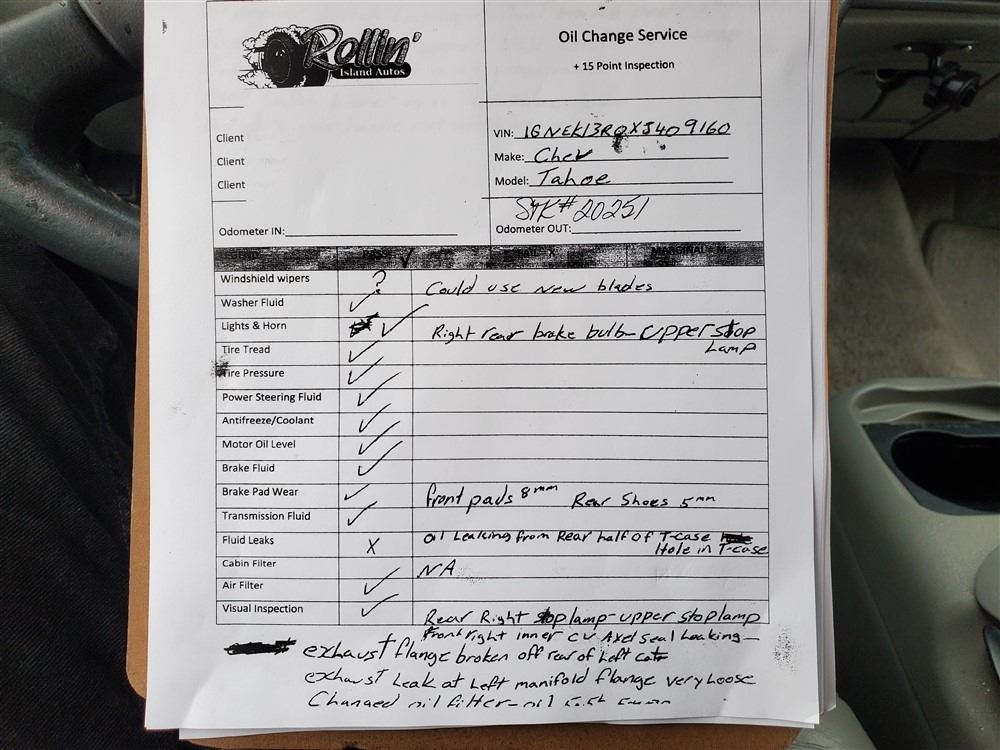 Rollin'
Island Autos
Oil Change Service
+ 15 Point Inspection
Client
Client
Client
VIN: 1GNEK13R0XJ409160
Make: Chev
Model: Tahoe
STK# 20251
Odometer IN:
Odometer OUT:
Windshield wipers ? Could use new blades
Washer Fluid ✓
Lights & Horn ✓ Right rear brake bulb - Upper stop
Lamp
Tire Tread ✓
Tire Pressure ✓
Power Steering Fluid ✓
Antifreeze/Coolant ✓
Motor Oil Level ✓
Brake Fluid ✓
Brake Pad Wear ✓ front pads 8mm Rear Shoes 5mm
Transmission Fluid ✓
Fluid Leaks X Oil Leaking from Rear half of T-case
Hole in T-case
Cabin Filter NA
Air Filter ✓
Visual Inspection ✓ Rear Right stoplamp - upper stoplamp
front right inner CV Axel seal Leaking
exhaust flange broken off rear of Left cat
exhaust Leak at Left manifold flange very Loose
Changed oil filter - oil